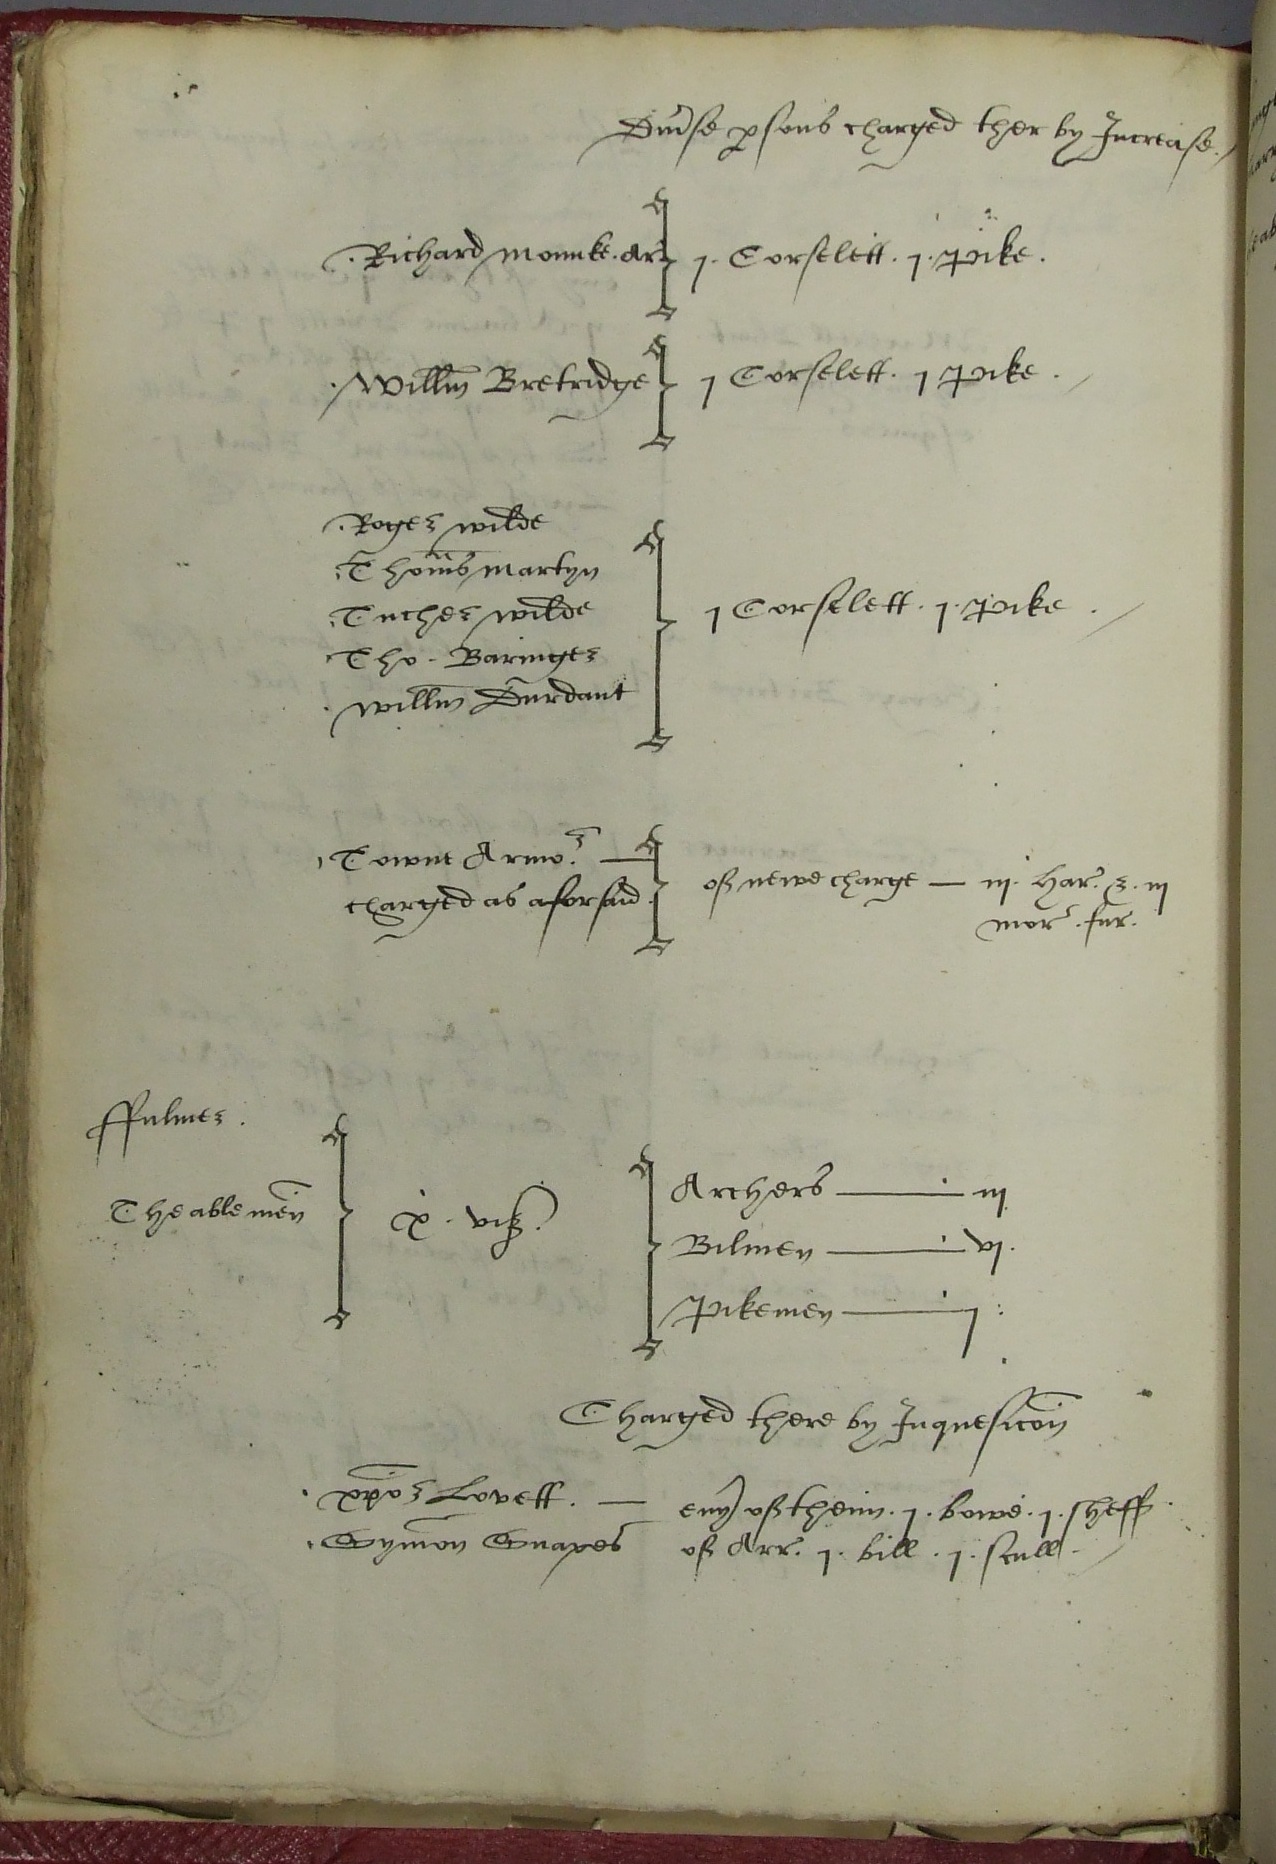 Div'se p'sons charged ther by Increase.
Richard Monnke. Ar' 1. Corselett. 1. Pike.
Will'm Bretridge 1 Corselett. 1 Pike.
Roger Wilde
Thom's Martyn
Tucher Wilde
Tho. Baringer
Will'm Durdant
1 Corselett. 1. Pike.
Towne Armo'r
charged as aforsaid
of newe charge — iij. Har'. &. iij
mor'. fur'.
ffulmer.
The able men
x. viz.
Archers — iij
Bilmen — vj.
Pikemen — j:
Charged there by Inquesic'on
xp'o'r Lovett. —
Symon Snapes
eu'y of them. 1. bowe. 1. sheff
of Arr. 1. bill. 1. scull.